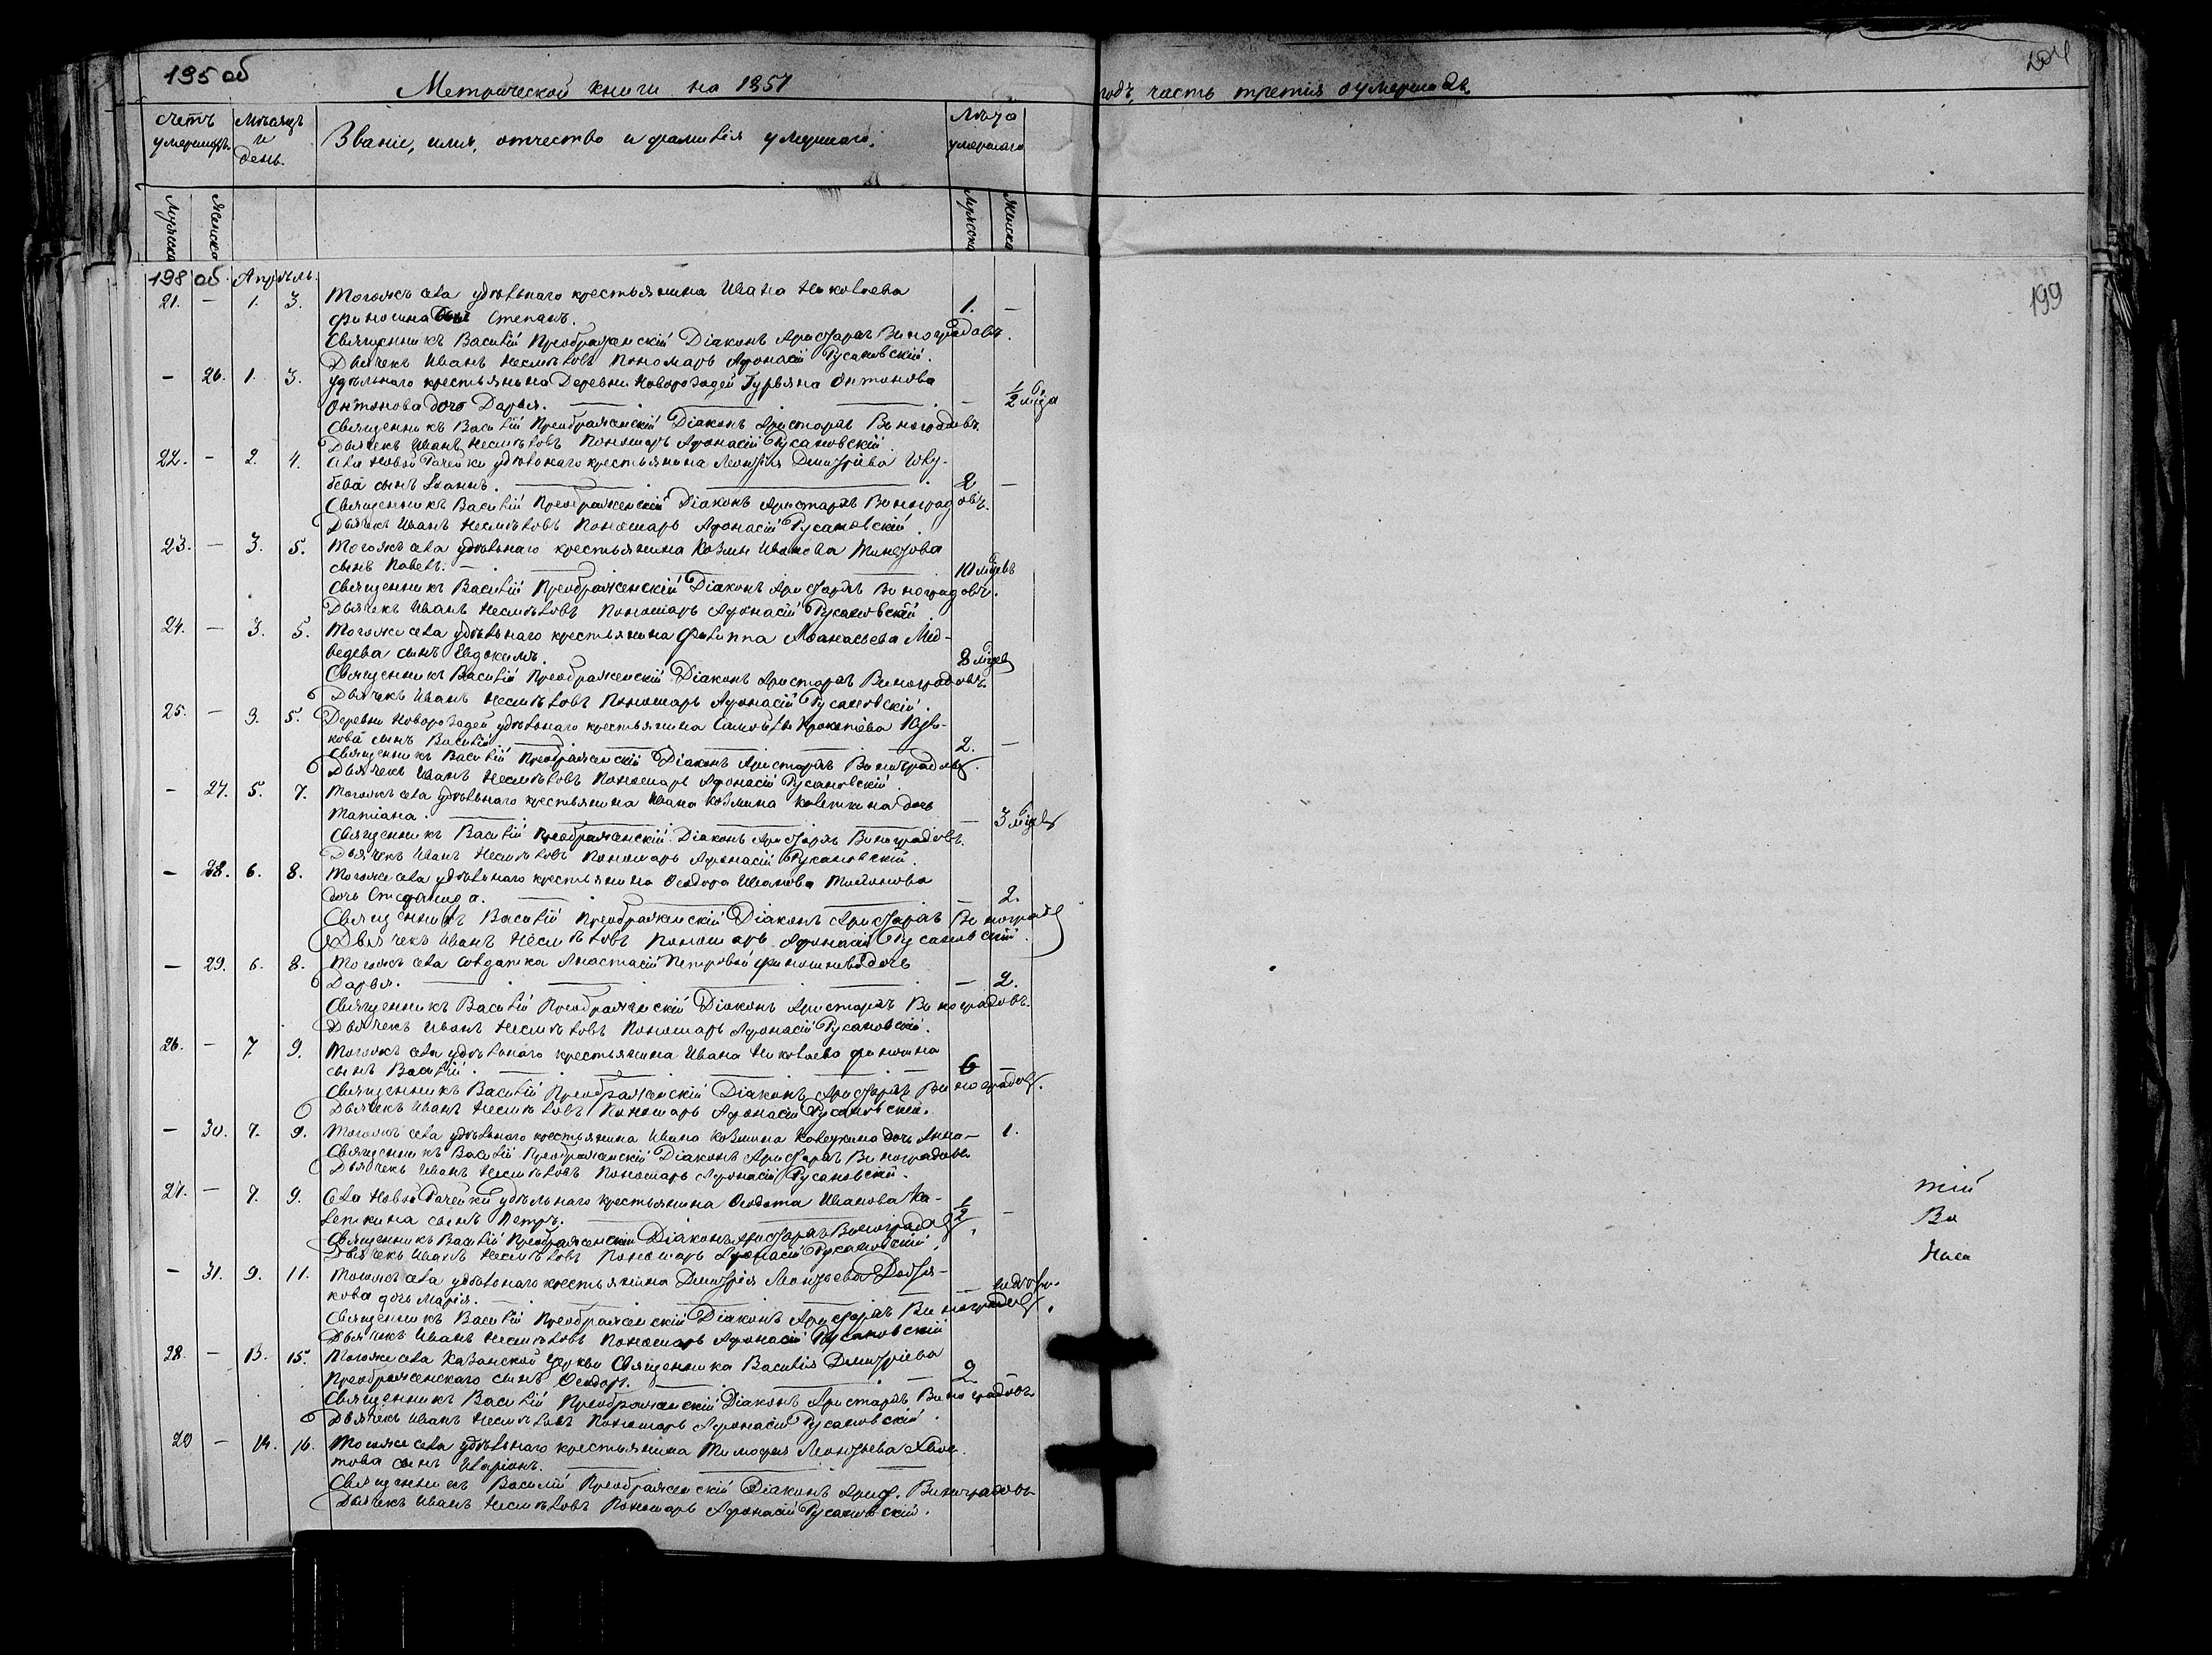 195 об
204
Метрической книги на 1851 годъ, часть третія о умершихъ.
Счетъ умершихъ.
Мѣсяцъ и день.
Званіе, имя, отчество и фамилія умершаго.
Лѣта умершаго
Мужска
Женска
Мужска
Женска
198 об. Апрѣль.
199
21. — 1. 3. Тогожъ села удѣльнаго крестьянина Ивана Николаева
Финогина сынъ Степанъ. 1. —
Священникъ Василій Преображенскій Діаконъ Аристархъ Виноградовъ.
Дьячекъ Иванъ Несмѣловъ Пономарь Афонасій Русановскій.
— 26. 1. 3. Удѣльнаго крестьянина Деревни Гурьяна Антонова
Антонова дочь Дарья. — 1/2 года
Священникъ Василій Преображенскій Діаконъ Аристархъ Виноградовъ.
Дьячекъ Иванъ Несмѣловъ Пономарь Афонасій Русановскій
22. — 2. 4. Села Новой Рачейки удѣльнаго крестьянина Леонтія Дмитріева
сынъ Іоаннъ. 2 —
Священникъ Василій Преображенскій Діаконъ Аристархъ Виноградовъ.
Дьячекъ Иванъ Несмѣловъ Пономарь Афонасій Русановскій.
23. — 3. 5. Тогожъ села удѣльнаго крестьянина Козмы Иванова
сынъ Павелъ. — 10 мѣсцевъ
Священникъ Василій Преображенскій Діаконъ Аристархъ Виноградовъ.
Дьячекъ Иванъ Несмѣловъ Пономарь Афонасій Русановскій.
24. — 3. 5. Тогоже села удѣльнаго крестьянина Филиппа Афанасьева Мед-
ведева сынъ Евдокимъ. 8 мѣсцев
Священникъ Василій Преображенскій Діаконъ Аристархъ Виноградовъ.
Дьячекъ Иванъ Несмѣловъ Пономарь Афонасій Русановскій.
25. — 3. 5. Деревни удѣльнаго крестьянина Самойлы Прокопіева
кова сынъ Василій 2. —
Священникъ Василій Преображенскій Діаконъ Аристархъ Виноградовъ.
Дьячекъ Иванъ Несмѣловъ Пономарь Афонасій Русановскій.
— 27. 5. 7. Тогожъ села удѣльнаго крестьянина Ивана Козмина дочь
Татіана. — 3 мѣсцев
Священникъ Василій Преображенскій Діаконъ Аристархъ Виноградовъ.
Дьячекъ Иванъ Несмѣловъ Пономарь Афонасій Русановскій.
— 28. 6. 8. Тогоже села удѣльнаго крестьянина Ѳеодора Иванова
дочь Стефанида. — 2.
Священникъ Василій Преображенскій Діаконъ Аристархъ Виноградов
Дьячекъ Иванъ Несмѣловъ Пономарь Афонасій Русановскій.
— 29. 6. 8. Тогожъ села Солдатка Анастасіи Петровой дочь
Дарья. — 2.
Священникъ Василій Преображенскій Діаконъ Аристархъ Виноградовъ.
Дьячекъ Иванъ Несмѣловъ Пономарь Афонасій Русановскій.
26. — 7 9. Тогожъ села удѣльнаго крестьянина Ивана Николаева Финогина
сынъ Василій. — 6 —
Священникъ Василій Преображенскій Діаконъ Аристархъ Виноградовъ.
Дьячекъ Иванъ Несмѣловъ Пономарь Афонасій Русановскій.
— 30. 7. 9. Тогожъ села удѣльнаго крестьянина Ивана Козмина дочь Анна — 1.
Священникъ Василій Преображенскій Діаконъ Аристархъ Виноградовъ
Дьячекъ Иванъ Несмѣловъ Пономарь Афонасій Русановскій.
27. — 7. 9. Села Новой Рачейки удѣльнаго крестьянина Ѳеодота Иванова Ка-
леткина сынъ Петръ. 1/2 —
Священникъ Василій Преображенскій Діаконъ Аристархъ Виноградовъ.
Дьячекъ Иванъ Несмѣловъ Пономарь Афонасій Русановскій.
— 31. 9. 11. Тогожъ села удѣльнаго крестьянина Дмитрія Леонтьева
кова дочь Марія. —
Священникъ Василій Преображенскій Діаконъ Аристархъ Виноградовъ.
Дьячекъ Иванъ Несмѣловъ Пономарь Афонасій Русановскій
28. — 13. 15. Тогоже села Казанской Церкви Священника Василія Дмитріева
Преображенскаго сынъ Ѳеодоръ. — 2 —
Священникъ Василій Преображенскій Діаконъ Аристархъ Виноградовъ
Дьячекъ Иванъ Несмѣловъ Пономарь Афонасій Русановскій.
29 — 14. 16. Тогоже села удѣльнаго крестьянина Тимофея Леонтьева Хвос-
това сынъ Иларіонъ. —
Священникъ Василій Преображенскій Діаконъ Арист. Виноградовъ
Дьячекъ Иванъ Несмѣловъ Пономарь Афонасій Русановскій.
тій
Ва